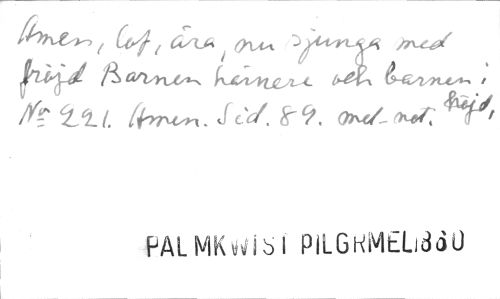 Amen, lof, ära, nu sjunga med
fröjd Barnen härnere och barnen i
No 221. Amen. Sid. 89. med not. höjd,
PALMKWIST PILGRMEL1880